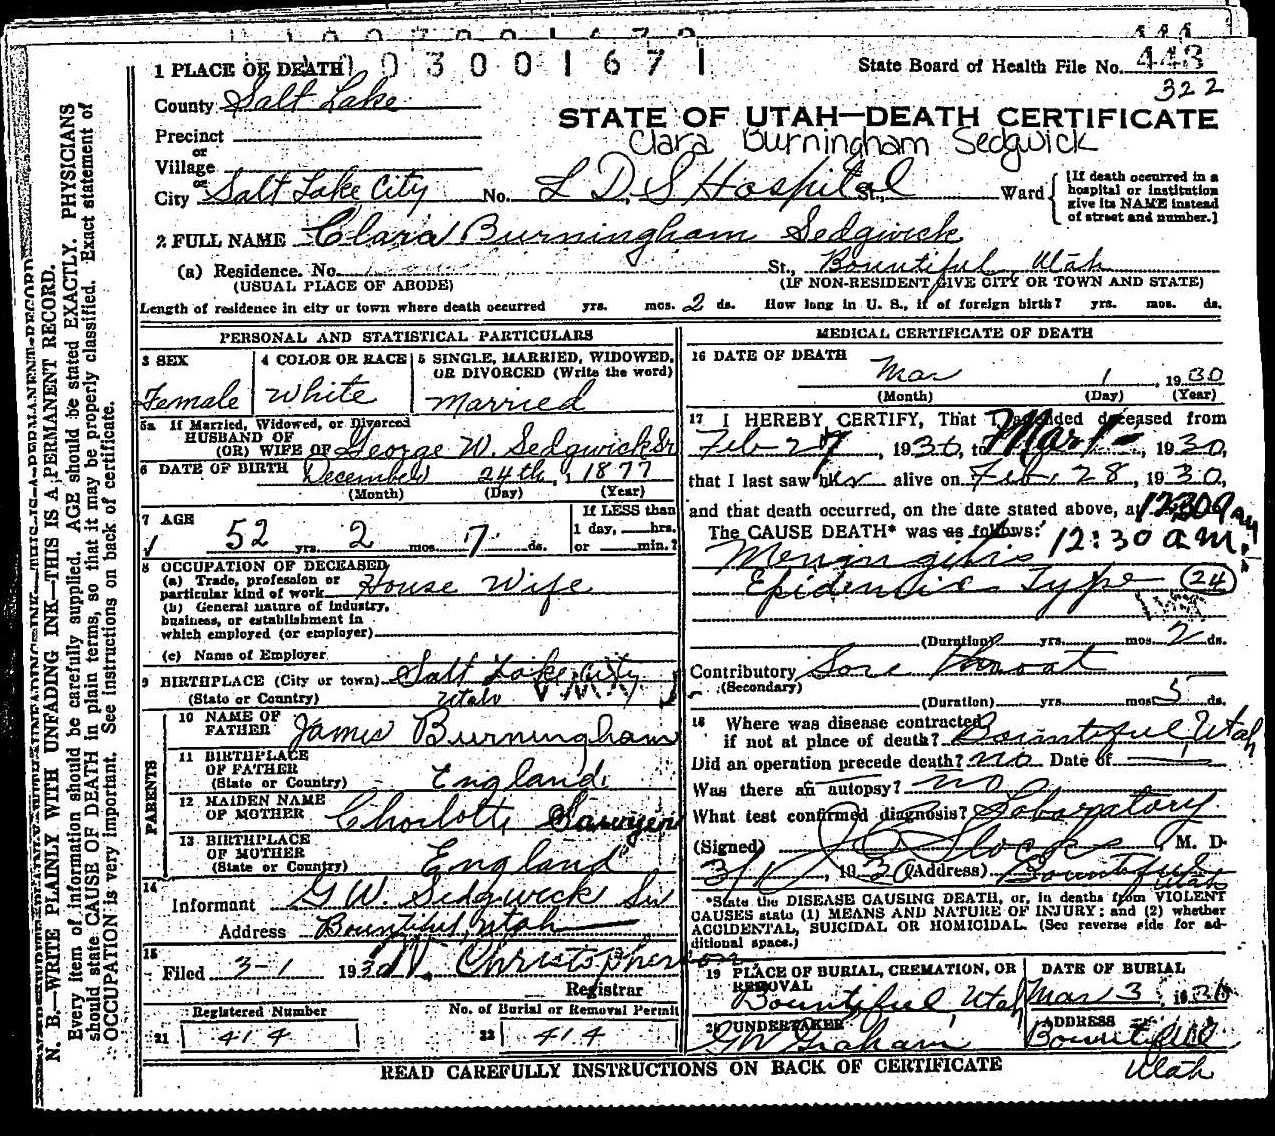 1 PLACE OF DEATH 1 0 3 0 0 1 6 7 1
State Board of Health File No. 443
322
County Salt Lake
STATE OF UTAH—DEATH CERTIFICATE
Clara Burningham Sedgwick
Precinct
or
Village
or
City Salt Lake City No. L D S Hospital St., Ward
[If death occurred in a hospital or institution give its NAME instead of street and number.]
2 FULL NAME Clara Burningham Sedgwick
(a) Residence. No. St., Bountiful, Utah
(USUAL PLACE OF ABODE) (IF NON-RESIDENT, GIVE CITY OR TOWN AND STATE)
Length of residence in city or town where death occurred yrs. mos. 2 ds. How long in U. S., if of foreign birth? yrs. mos. ds.
PERSONAL AND STATISTICAL PARTICULARS
3 SEX
Female
4 COLOR OR RACE
White
5 SINGLE, MARRIED, WIDOWED, OR DIVORCED (Write the word)
Married
5a If Married, Widowed, or Divorced
HUSBAND OF
(OR) WIFE OF George W. Sedgwick Sr
6 DATE OF BIRTH December 24th, 1877
(Month) (Day) (Year)
7 AGE
52 yrs. 2 mos. 7 ds.
If LESS than
1 day, hrs.
or min.?
8 OCCUPATION OF DECEASED
(a) Trade, profession or
particular kind of work House Wife
(b) General nature of industry,
business, or establishment in
which employed (or employer)
(c) Name of Employer
9 BIRTHPLACE (City or town) Salt Lake City
(State or Country) Utah
PARENTS
10 NAME OF
FATHER James Burningham
11 BIRTHPLACE
OF FATHER
(State or Country) England
12 MAIDEN NAME
OF MOTHER Charlotte
13 BIRTHPLACE
OF MOTHER
(State or Country) England
14
Informant G W. Sedgwick Sr
Address Bountiful, Utah
15
Filed 3-1 1930 Christopherson
Registrar
Registered Number
21 414
No. of Burial or Removal Permit
22 414
MEDICAL CERTIFICATE OF DEATH
16 DATE OF DEATH
Mar 1, 1930
(Month) (Day) (Year)
17 I HEREBY CERTIFY, That I attended deceased from
Feb 27, 1930, to Mar 1-, 1930,
that I last saw her alive on Feb. 28, 1930,
and that death occurred, on the date stated above, at
The CAUSE DEATH* was as follows: 12:30 a.m.
Meningitis
Epidemic Type (24)
(Duration) yrs. mos. 2 ds.
Contributory Sore throat
(Secondary)
(Duration) yrs. mos. 5 ds.
18 Where was disease contracted
if not at place of death? Bountiful, Utah
Did an operation precede death? no Date of
Was there an autopsy? no
What test confirmed diagnosis? Laboratory
(Signed) Stocks M. D.
3/1, 1930 (Address) Bountiful
Utah
*State the DISEASE CAUSING DEATH, or, in deaths from VIOLENT
CAUSES state (1) MEANS AND NATURE OF INJURY; and (2) whether
ACCIDENTAL, SUICIDAL OR HOMICIDAL. (See reverse side for ad-
ditional space.)
19 PLACE OF BURIAL, CREMATION, OR
REMOVAL
Bountiful, Utah
DATE OF BURIAL
Mar 3, 1930
20 UNDERTAKER
G W Graham
ADDRESS
Bountiful
Utah
READ CAREFULLY INSTRUCTIONS ON BACK OF CERTIFICATE
N. B.—WRITE PLAINLY WITH UNFADING INK—THIS IS A PERMANENT RECORD.
Every item of information should be carefully supplied. AGE should be stated EXACTLY. PHYSICIANS
should state CAUSE OF DEATH in plain terms, so that it may be properly classified. Exact statement of
OCCUPATION is very important. See instructions on back of certificate.